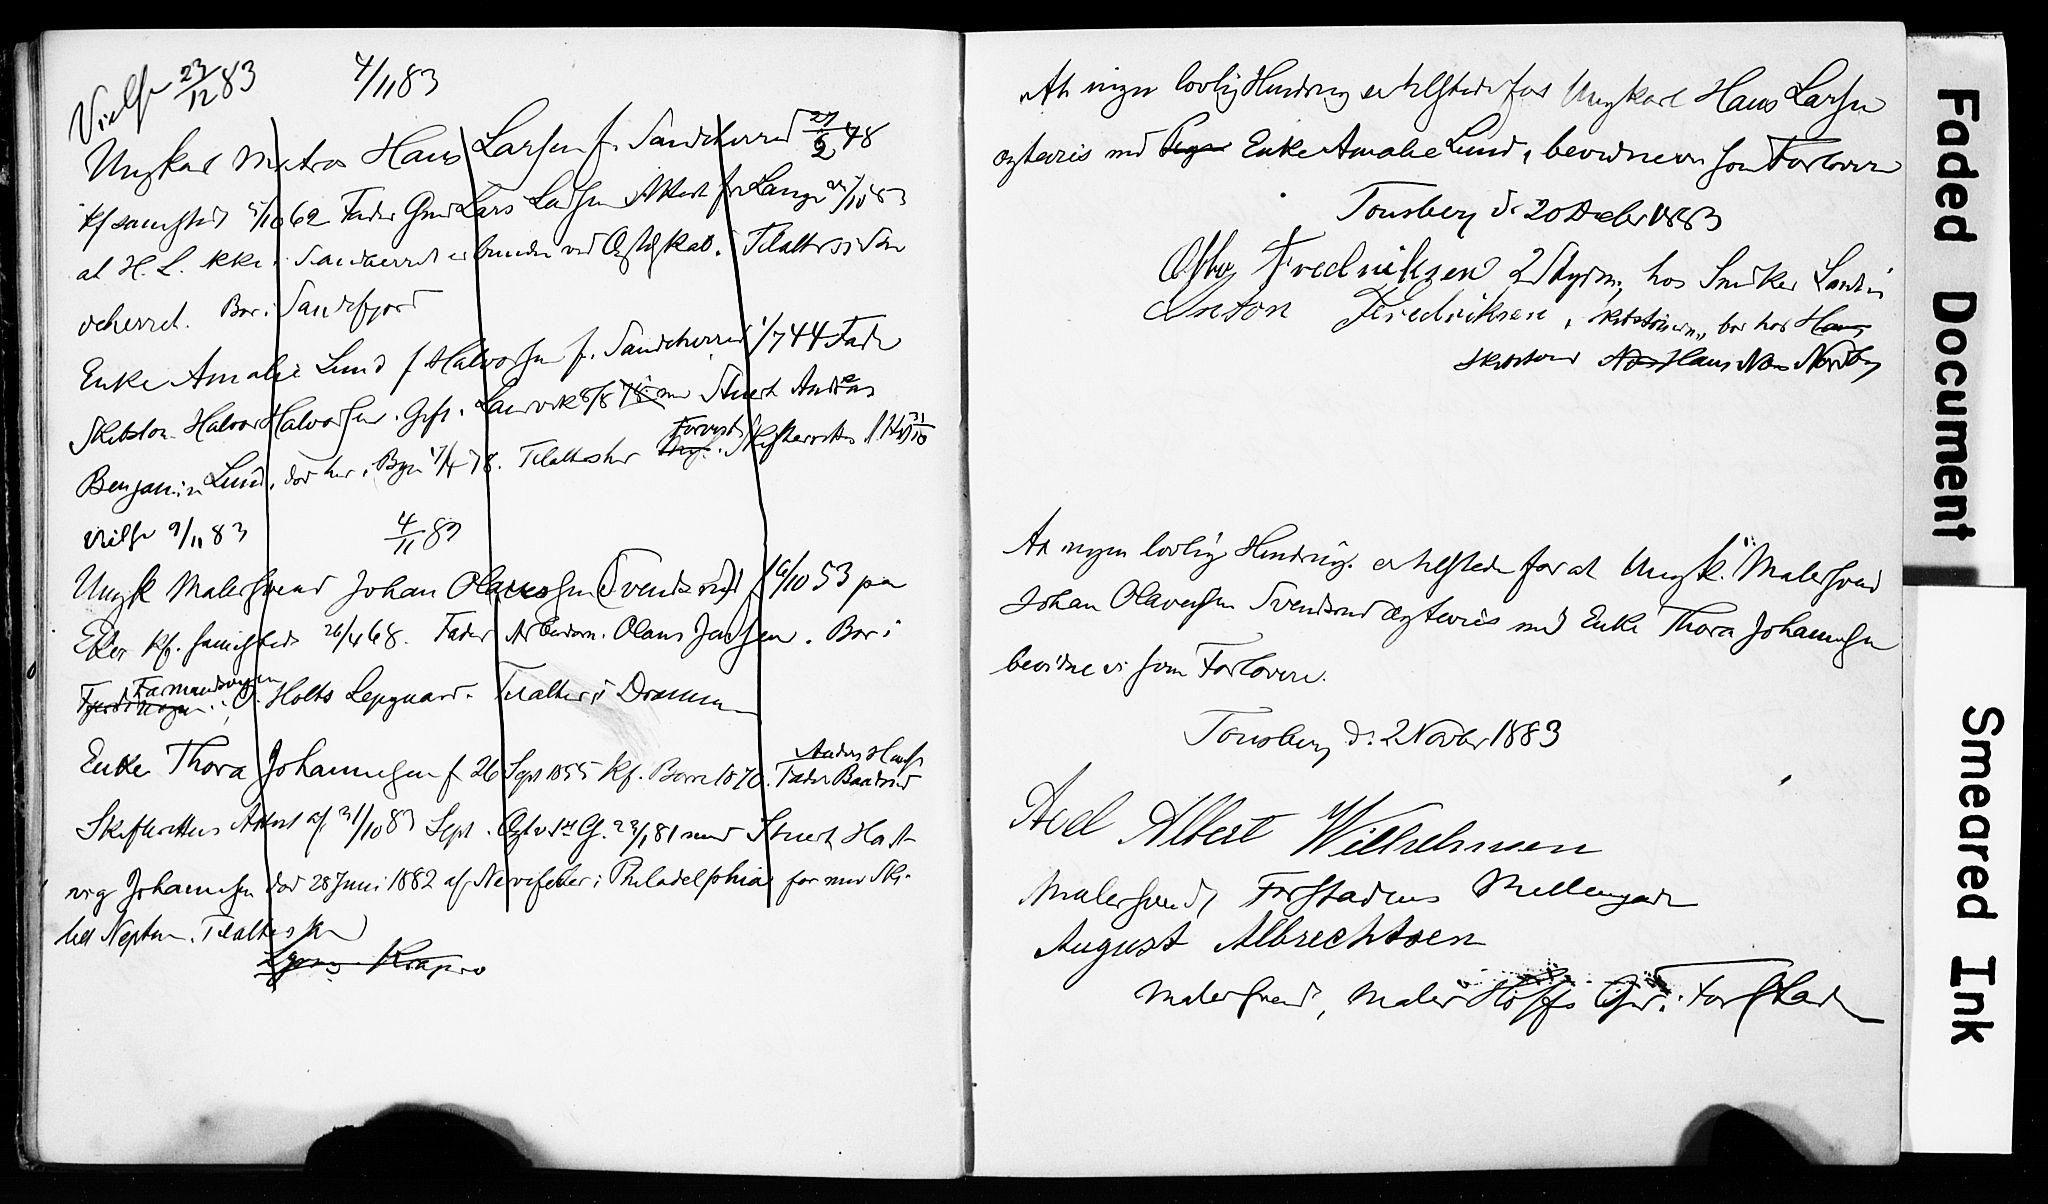 Vielse 23/12 83 4/11 83
Ungkarl Matros Hans Larsen f. Sandeherred 27/2 48
kf samsteds 5/10 62 Fader Grmd Lars Larsen Attest fra Lange /10 83
at H. L. ikke i Sandherred er bunden ved Ægteskab. Tilalters i San
deherred. Bor i Sandefjord
Enke Amalie Lund f Halvorsen f. Sandeherred 1/7 44 Fader
Skibstøm. Halvor Halvorsen. Gift i Laurvik 8/8 75 med Stuert Andreas
Benjamin Lund, død her i Byen 17/4 78. Tilalters her Forevist Skifterettes Att 31/10
Vielse 9/11 83 4/11 83
Ungk Malersvend Johan Olavesen Svendsrud f 16/10 53 paa
Eker kf. samesteds 26/4 68. Fader Arbeidsm. Olaus Jansen. Bor i
Fjerdingen Farmandsveien i O. Holts Leiegaard. Tilalters i Drammen
Enke Thora Johannesen f 26 Sept 1855 kf. Borre 1870. Fader Baadsmd Anders Hans
Skifterettens Attest af 31/10 83 Sept. Ægtev. 1ste G. 23/1 81 med Stuert Hart
vig Johannesen død 28 Juni 1882 af Nervefeber i Philadelphia for med Ski-
bet Neptun. Tilalters her
At ingen lovlig Hindring er tilstede for Ungkarl Hans Larsen
ægtevies med Pigen Enke Amalie Lund, bevidner vi som Forlovere
Tønsberg d. 20 Decber 1883
Otto Fredriksen 2 Styrm., hos Snedker Lardin
Anton Fredriksen, Skibstømm., bor hos Hans
Skibstømd Næs Hans Næs Nordby
At ingen lovlig Hindring er tilstede for at Ungk. Malersvend
Johan Olavesen Svendsrud ægtevies med Enke Thora Johannesen
bevidne vi som Forlovere.
Tønsberg d. 2 Novbr 1883
Axel Albert Wilhelmsen
Malersvend, Forstadens Møllengade
August Albrechtsen
Malersvend, Maler Hoffs Grd. Forstaden
Faded Document
Smeared Ink